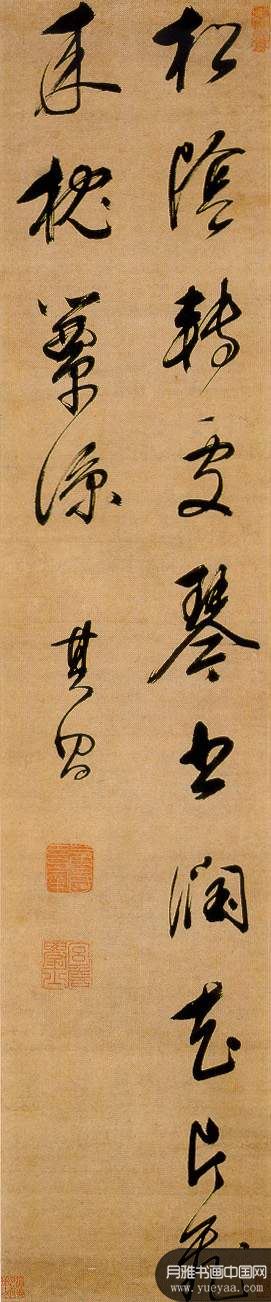 松陰轉處琴書潤花片飛
來枕簟涼
其昌
月雅书画中国网
www.yueyaa.com